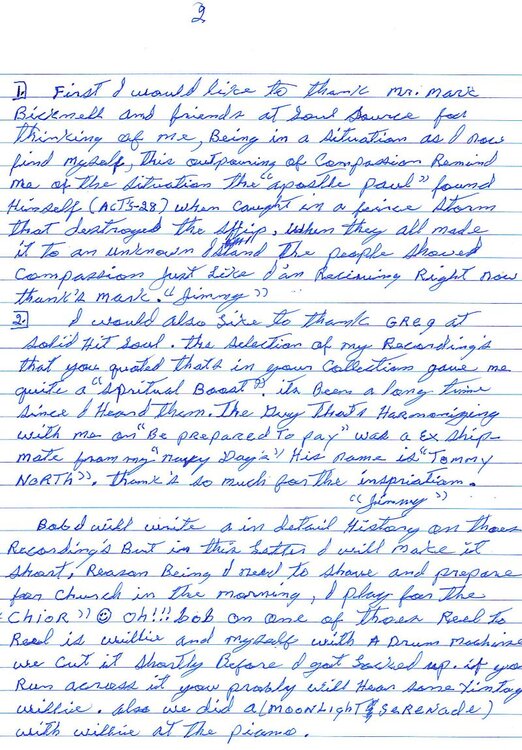 2
1. First I would like to thank Mr. Mark
Bicknell and friends at Soul Source for
thinking of me, Being in a situation as I now
find myself, this outpouring of Compassion Remind
me of the situation the "apostle paul" found
Himself (ACTS-28) when caught in a feirce storm
that destroyed the ship, when they all made
it to an unknown Island the people showed
Compassion Just Like I'm Recieving Right now
thank's mark. "Jimmy"
2. I would also Like to thank GREG at
Solid Hit Soul. the selection of my Recording's
that you quoted thats in your Collection gave me
quite a "Spritual Boost". its Been a long time
since I Heard them. The Guy that's Harmonizing
with me on "Be prepared To pay" was a Ex ship-
mate from my "navy Day's" His name is "Tommy
NoRTH". thank's so much for the inspriation.
"Jimmy"
Bob I will write a in detail History on thoes
Recording's But in this Letter I will make it
short, Reason Being I need to shave and prepare
for Church in the morning, I play for the
"CHIOR" ☺ Oh!!! bob on one of thoes Reel to
Reel is willie and myself with A Drum Machine
we Cut it shortly Before I got Locked up. if you
Run across it you probly will Hear some Vintag
willie. also we did a (MOONLIGHT SERENADE)
with willie at the piano.